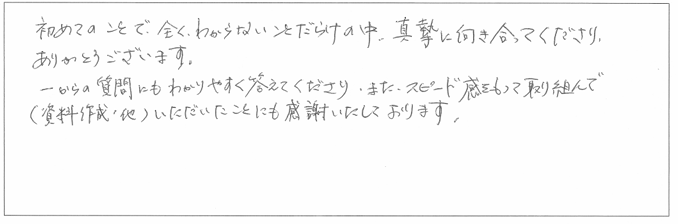 初めてのことで、全く、わからないことだらけの中、真摯に向き合ってくださり、
ありがとうございます。
一からの質問にもわかりやすく答えてくださり、また、スピード感をもって取り組んで
(資料作成・他)いただいたことにも感謝いたしております。